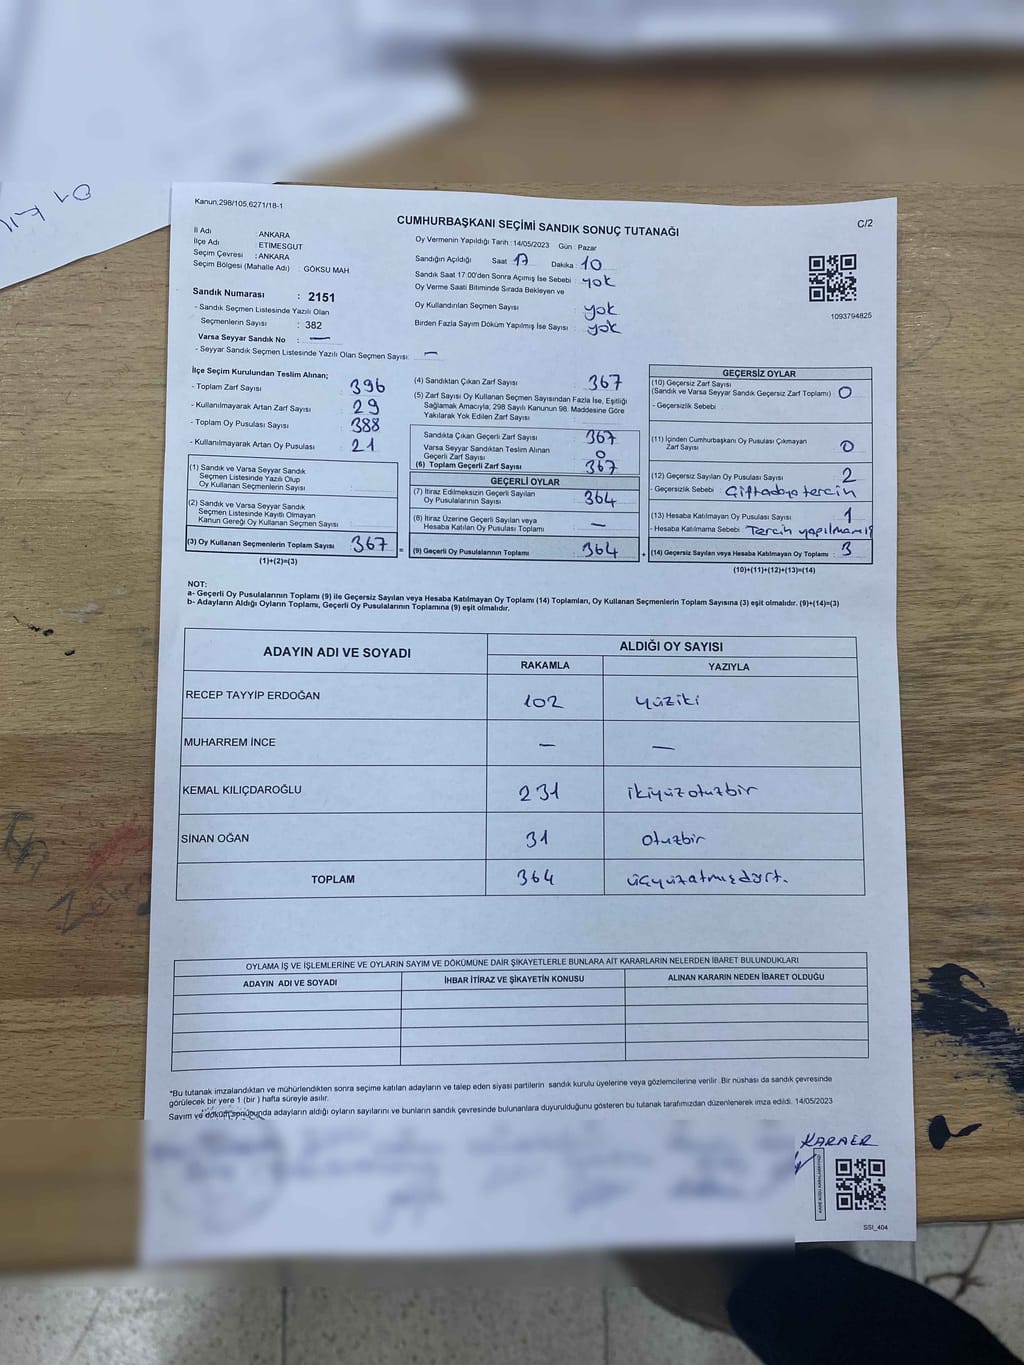 Kanun,298/105,6271/18-1
CUMHURBAŞKANI SEÇİMİ SANDIK SONUÇ TUTANAĞI
C/2
İl Adı : ANKARA
İlçe Adı : ETIMESGUT
Seçim Çevresi : ANKARA
Seçim Bölgesi (Mahalle Adı) : GÖKSU MAH
Oy Vermenin Yapıldığı Tarih : 14/05/2023 Gün : Pazar
Sandığın Açıldığı Saat 17 Dakika : 10
Sandık Saat 17.00'den Sonra Açımış İse Sebebi : yok
Oy Verme Saati Bitiminde Sırada Bekleyen ve
Oy Kullandırılan Seçmen Sayısı : yok
Birden Fazla Sayım Döküm Yapılmış İse Sayısı : yok
1093794825
Sandık Numarası : 2151
- Sandık Seçmen Listesinde Yazılı Olan
Seçmenlerin Sayısı : 382
Varsa Seyyar Sandık No : —
- Seyyar Sandık Seçmen Listesinde Yazılı Olan Seçmen Sayısı: —
İlçe Seçim Kurulundan Teslim Alınan;
- Toplam Zarf Sayısı : 396
- Kullanılmayarak Artan Zarf Sayısı : 29
- Toplam Oy Pusulası Sayısı : 388
- Kullanılmayarak Artan Oy Pusulası : 21
(1) Sandık ve Varsa Seyyar Sandık
Seçmen Listesinde Yazılı Olup
Oy Kullanan Seçmenlerin Sayısı :
(2) Sandık ve Varsa Seyyar Sandık
Seçmen Listesinde Kayıtlı Olmayan
Kanun Gereği Oy Kullanan Seçmen Sayısı :
(3) Oy Kullanan Seçmenlerin Toplam Sayısı : 367
(1)+(2)=(3)
(4) Sandıktan Çıkan Zarf Sayısı : 367
(5) Zarf Sayısı Oy Kullanan Seçmen Sayısından Fazla İse, Eşitliği
Sağlamak Amacıyla, 298 Sayılı Kanunun 98. Maddesine Göre
Yakılarak Yok Edilen Zarf Sayısı :
Sandıkta Çıkan Geçerli Zarf Sayısı : 367
Varsa Seyyar Sandıktan Teslim Alınan
Geçerli Zarf Sayısı : 0
(6) Toplam Geçerli Zarf Sayısı : 367
GEÇERLİ OYLAR
(7) İtiraz Edilmeksizin Geçerli Sayılan
Oy Pusulalarının Sayısı : 364
(8) İtiraz Üzerine Geçerli Sayılan veya
Hesaba Katılan Oy Pusulası Toplamı : —
= (9) Geçerli Oy Pusulalarının Toplamı : 364
GEÇERSİZ OYLAR
(10) Geçersiz Zarf Sayısı
(Sandık ve Varsa Seyyar Sandık Geçersiz Zarf Toplamı) : 0
- Geçersizlik Sebebi :
(11) İçinden Cumhurbaşkanı Oy Pusulası Çıkmayan
Zarf Sayısı : 0
(12) Geçersiz Sayılan Oy Pusulası Sayısı : 2
- Geçersizlik Sebebi : Çift adaya tercih
(13) Hesaba Katılmayan Oy Pusulası Sayısı : 1
- Hesaba Katılmama Sebebi : Tercih yapılmamış
+ (14) Geçersiz Sayılan veya Hesaba Katılmayan Oy Toplamı : 3
(10)+(11)+(12)+(13)=(14)
NOT:
a- Geçerli Oy Pusulalarının Toplamı (9) ile Geçersiz Sayılan veya Hesaba Katılmayan Oy Toplamı (14) Toplamları, Oy Kullanan Seçmenlerin Toplam Sayısına (3) eşit olmalıdır. (9)+(14)=(3)
b- Adayların Aldığı Oyların Toplamı, Geçerli Oy Pusulalarının Toplamına (9) eşit olmalıdır.
ADAYIN ADI VE SOYADI
ALDIĞI OY SAYISI
RAKAMLA YAZIYLA
RECEP TAYYİP ERDOĞAN 102 yüziki
MUHARREM İNCE — —
KEMAL KILIÇDAROĞLU 231 ikiyüzotuzbir
SİNAN OĞAN 31 otuzbir
TOPLAM 364 üçyüzatmışdört.
OYLAMA İŞ VE İŞLEMLERİNE VE OYLARIN SAYIM VE DÖKÜMÜNE DAİR ŞİKAYETLERLE BUNLARA AİT KARARLARIN NELERDEN İBARET BULUNDUKLARI
ADAYIN ADI VE SOYADI İHBAR İTİRAZ VE ŞİKAYETİN KONUSU ALINAN KARARIN NEDEN İBARET OLDUĞU
*Bu tutanak imzalandıktan ve mühürlendikten sonra seçime katılan adayların ve talep eden siyasi partilerin sandık kurulu üyelerine veya gözlemcilerine verilir. Bir nüshası da sandık çevresinde
görülecek bir yere 1 (bir ) hafta süreyle asılır.
Sayım ve döküm sonucunda adayların aldığı oyların sayılarını ve bunların sandık çevresinde bulunanlara duyurulduğunu gösteren bu tutanak tarafımızdan düzenlenerek imza edildi. 14/05/2023
KARAER
SSI_404